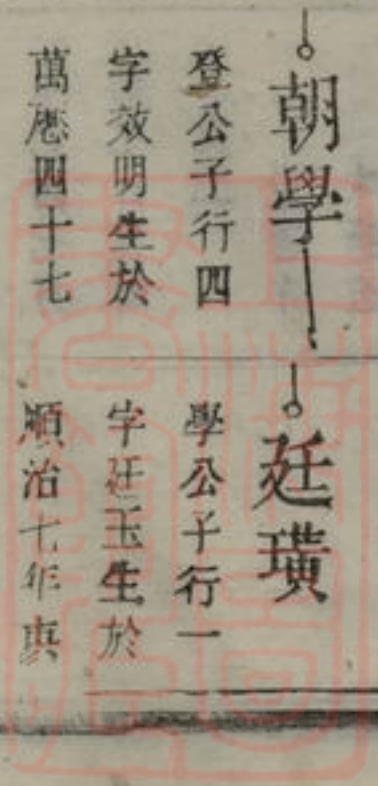 朝學
登公子行四
字效明生於
萬厯四十七
廷璜
學公子行一
字廷玉生於
順治七年